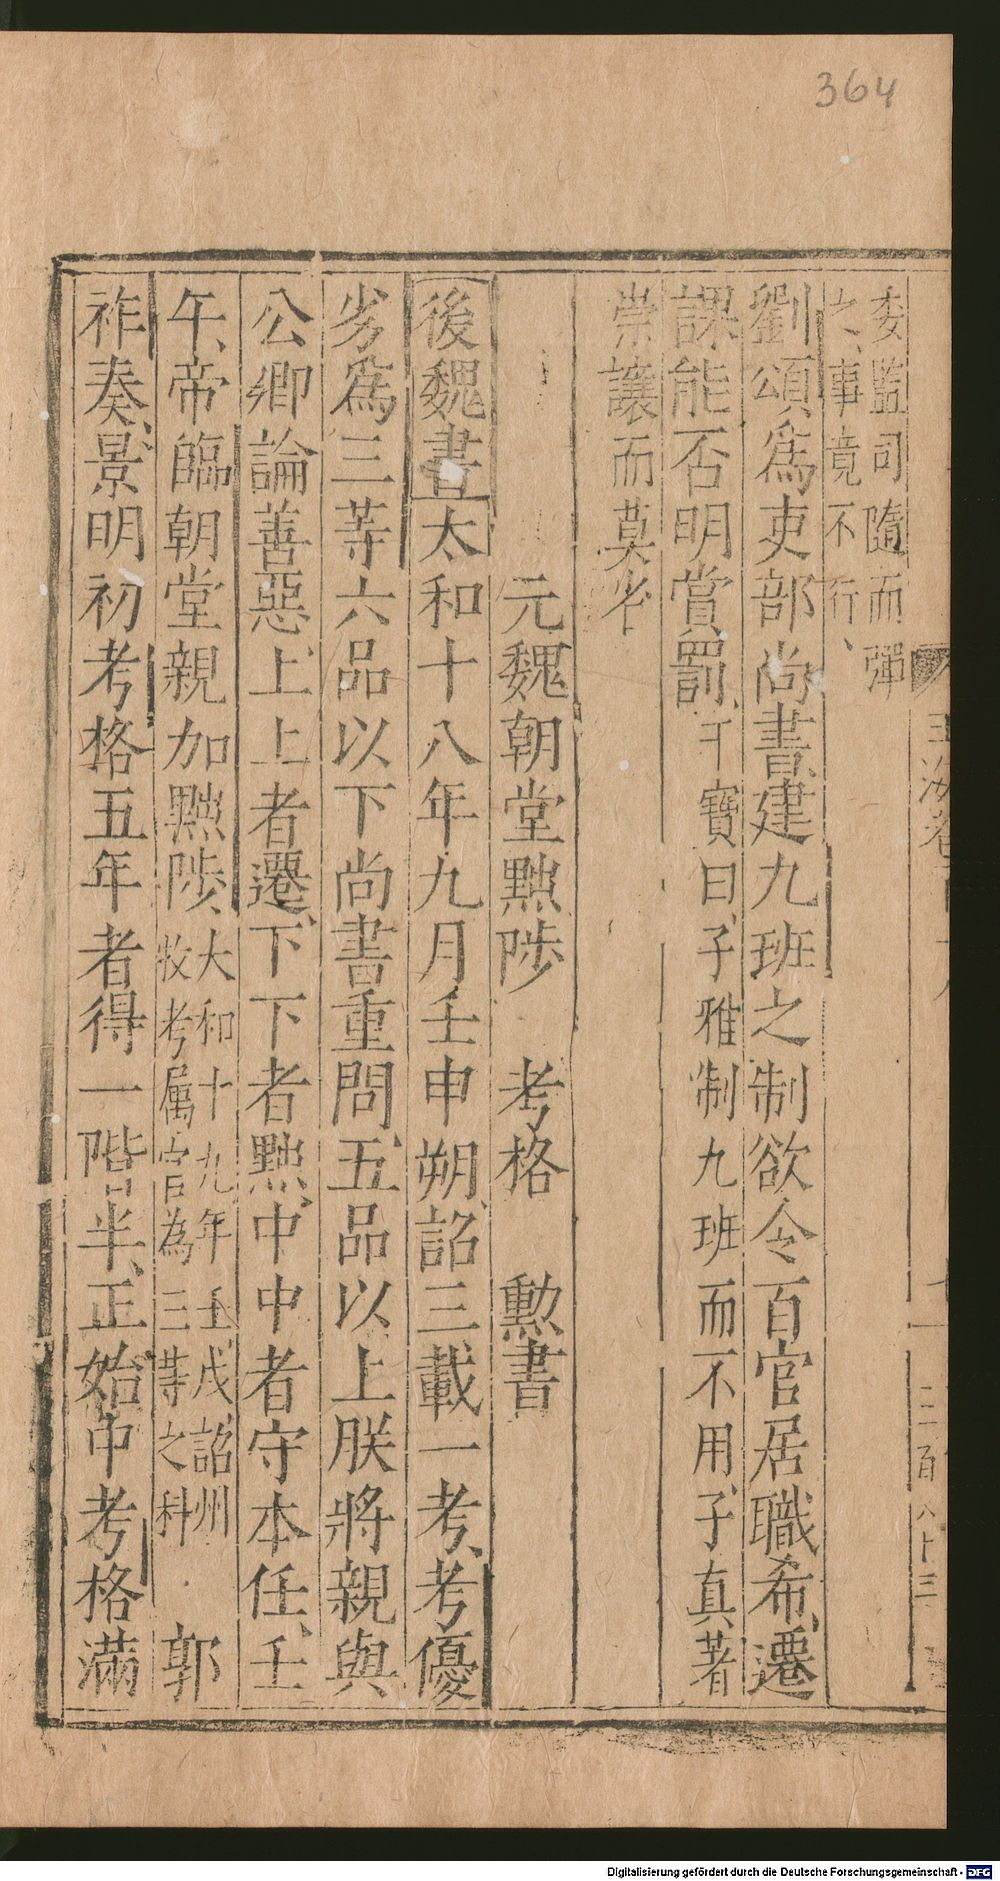 364
玉海卷百十八
二百八十三
委監司隨而彈
之事竟不行、
劉頌爲吏部尚書建九班之制欲令百官居職希、遷
課能否明賞罰、干寶曰、子雅制九班而不用、子真著
崇讓而莫省
元魏朝堂黜陟 考格 勲書
後魏書太和十八年九月壬申朔、詔三載一考、考優
劣爲三等六品以下尚書重問、五品以上朕將親與
公卿論善惡、上上者遷、下下者黜、中中者守本任、壬
午、帝臨朝堂親加黜陟、大和十九年壬、戊、詔州
牧考属官為三等之科 郭
祚奏、景明初考格五年者得一階半、正始中考格滿
Digitalisierung gefördert durch die Deutsche Forschungsgemeinschaft - DFG